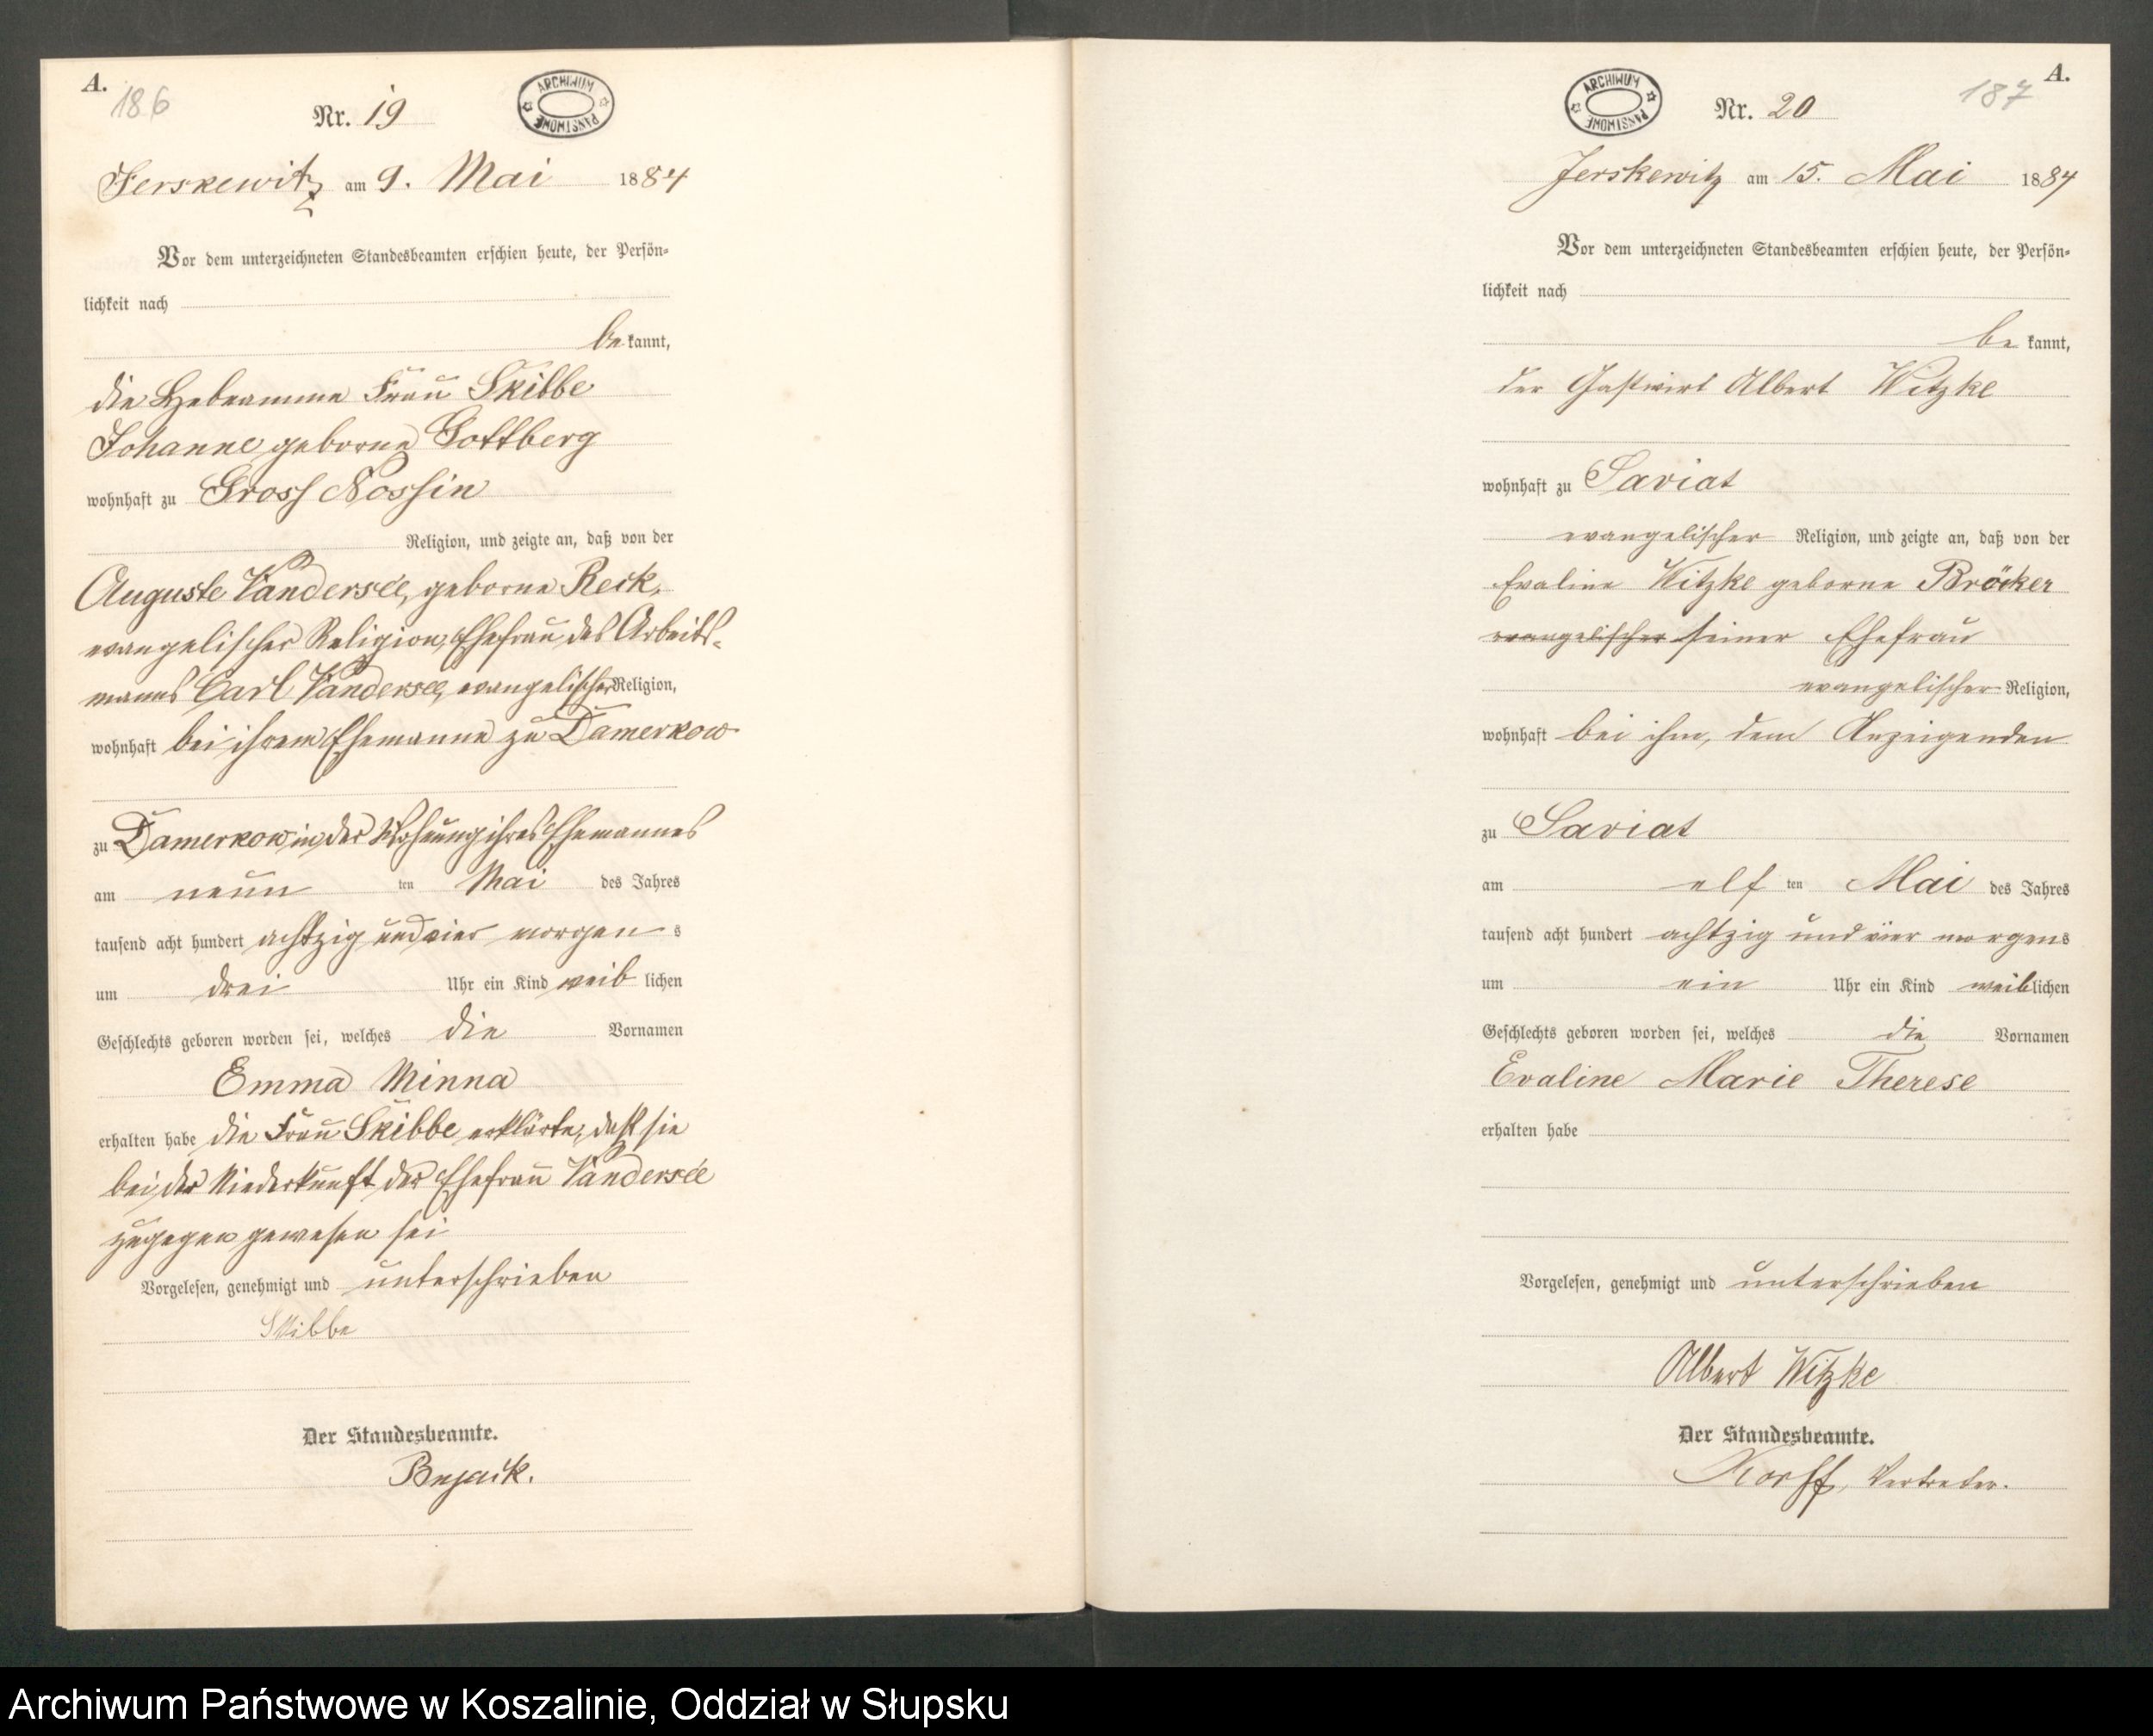 A.
186
Nr. 19
ARCHIWUM PAŃSTWOWE
Jerskewitz am 9. Mai 1884
Vor dem unterzeichneten Standesbeamten erschien heute, der Persön-
lichkeit nach
be kannt,
die Hebeamme Frau Skibbe
Johanne geborne Gottberg
wohnhaft zu Gross Nossin
Religion, und zeigte an, daß von der
Auguste Vandersee, geborne Reck,
evangelischer Religion, Ehefrau des Arbeits-
manns Carl Vandersee, evangelischer Religion,
wohnhaft bei ihrem Ehemanne zu Damerkow
zu Damerkow in der Wohnung ihres Ehemannes
am neun ten Mai des Jahres
tausend acht hundert achtzig und vier morgen s
um drei Uhr ein Kind weib lichen
Geschlechts geboren worden sei, welches die Vornamen
Emma Minna
erhalten habe die Frau Skibbe erklärte, daß sie
bei der Niederkunft der Ehefrau Vandersee
zugegen gewesen sei
Vorgelesen, genehmigt und unterschrieben
Skibbe
Der Standesbeamte.
A.
187
ARCHIWUM PAŃSTWOWE
Nr. 20
Jerskewitz am 15. Mai 1884
Vor dem unterzeichneten Standesbeamten erschien heute, der Persön-
lichkeit nach
be kannt,
der Gastwirt Albert Witzke
wohnhaft zu Saviat
evangelischer Religion, und zeigte an, daß von der
Evaline Witzke geborne Bröcker
evangelischer seiner Ehefrau
evangelischer Religion,
wohnhaft bei ihm, dem Anzeigenden
zu Saviat
am elf ten Mai des Jahres
tausend acht hundert achtzig und vier morgens
um ein Uhr ein Kind weiblichen
Geschlechts geboren worden sei, welches die Vornamen
Evaline Marie Therese
erhalten habe
Vorgelesen, genehmigt und unterschrieben
Albert Witzke
Der Standesbeamte.
Korff, Vertreter.
Archiwum Państwowe w Koszalinie, Oddział w Słupsku